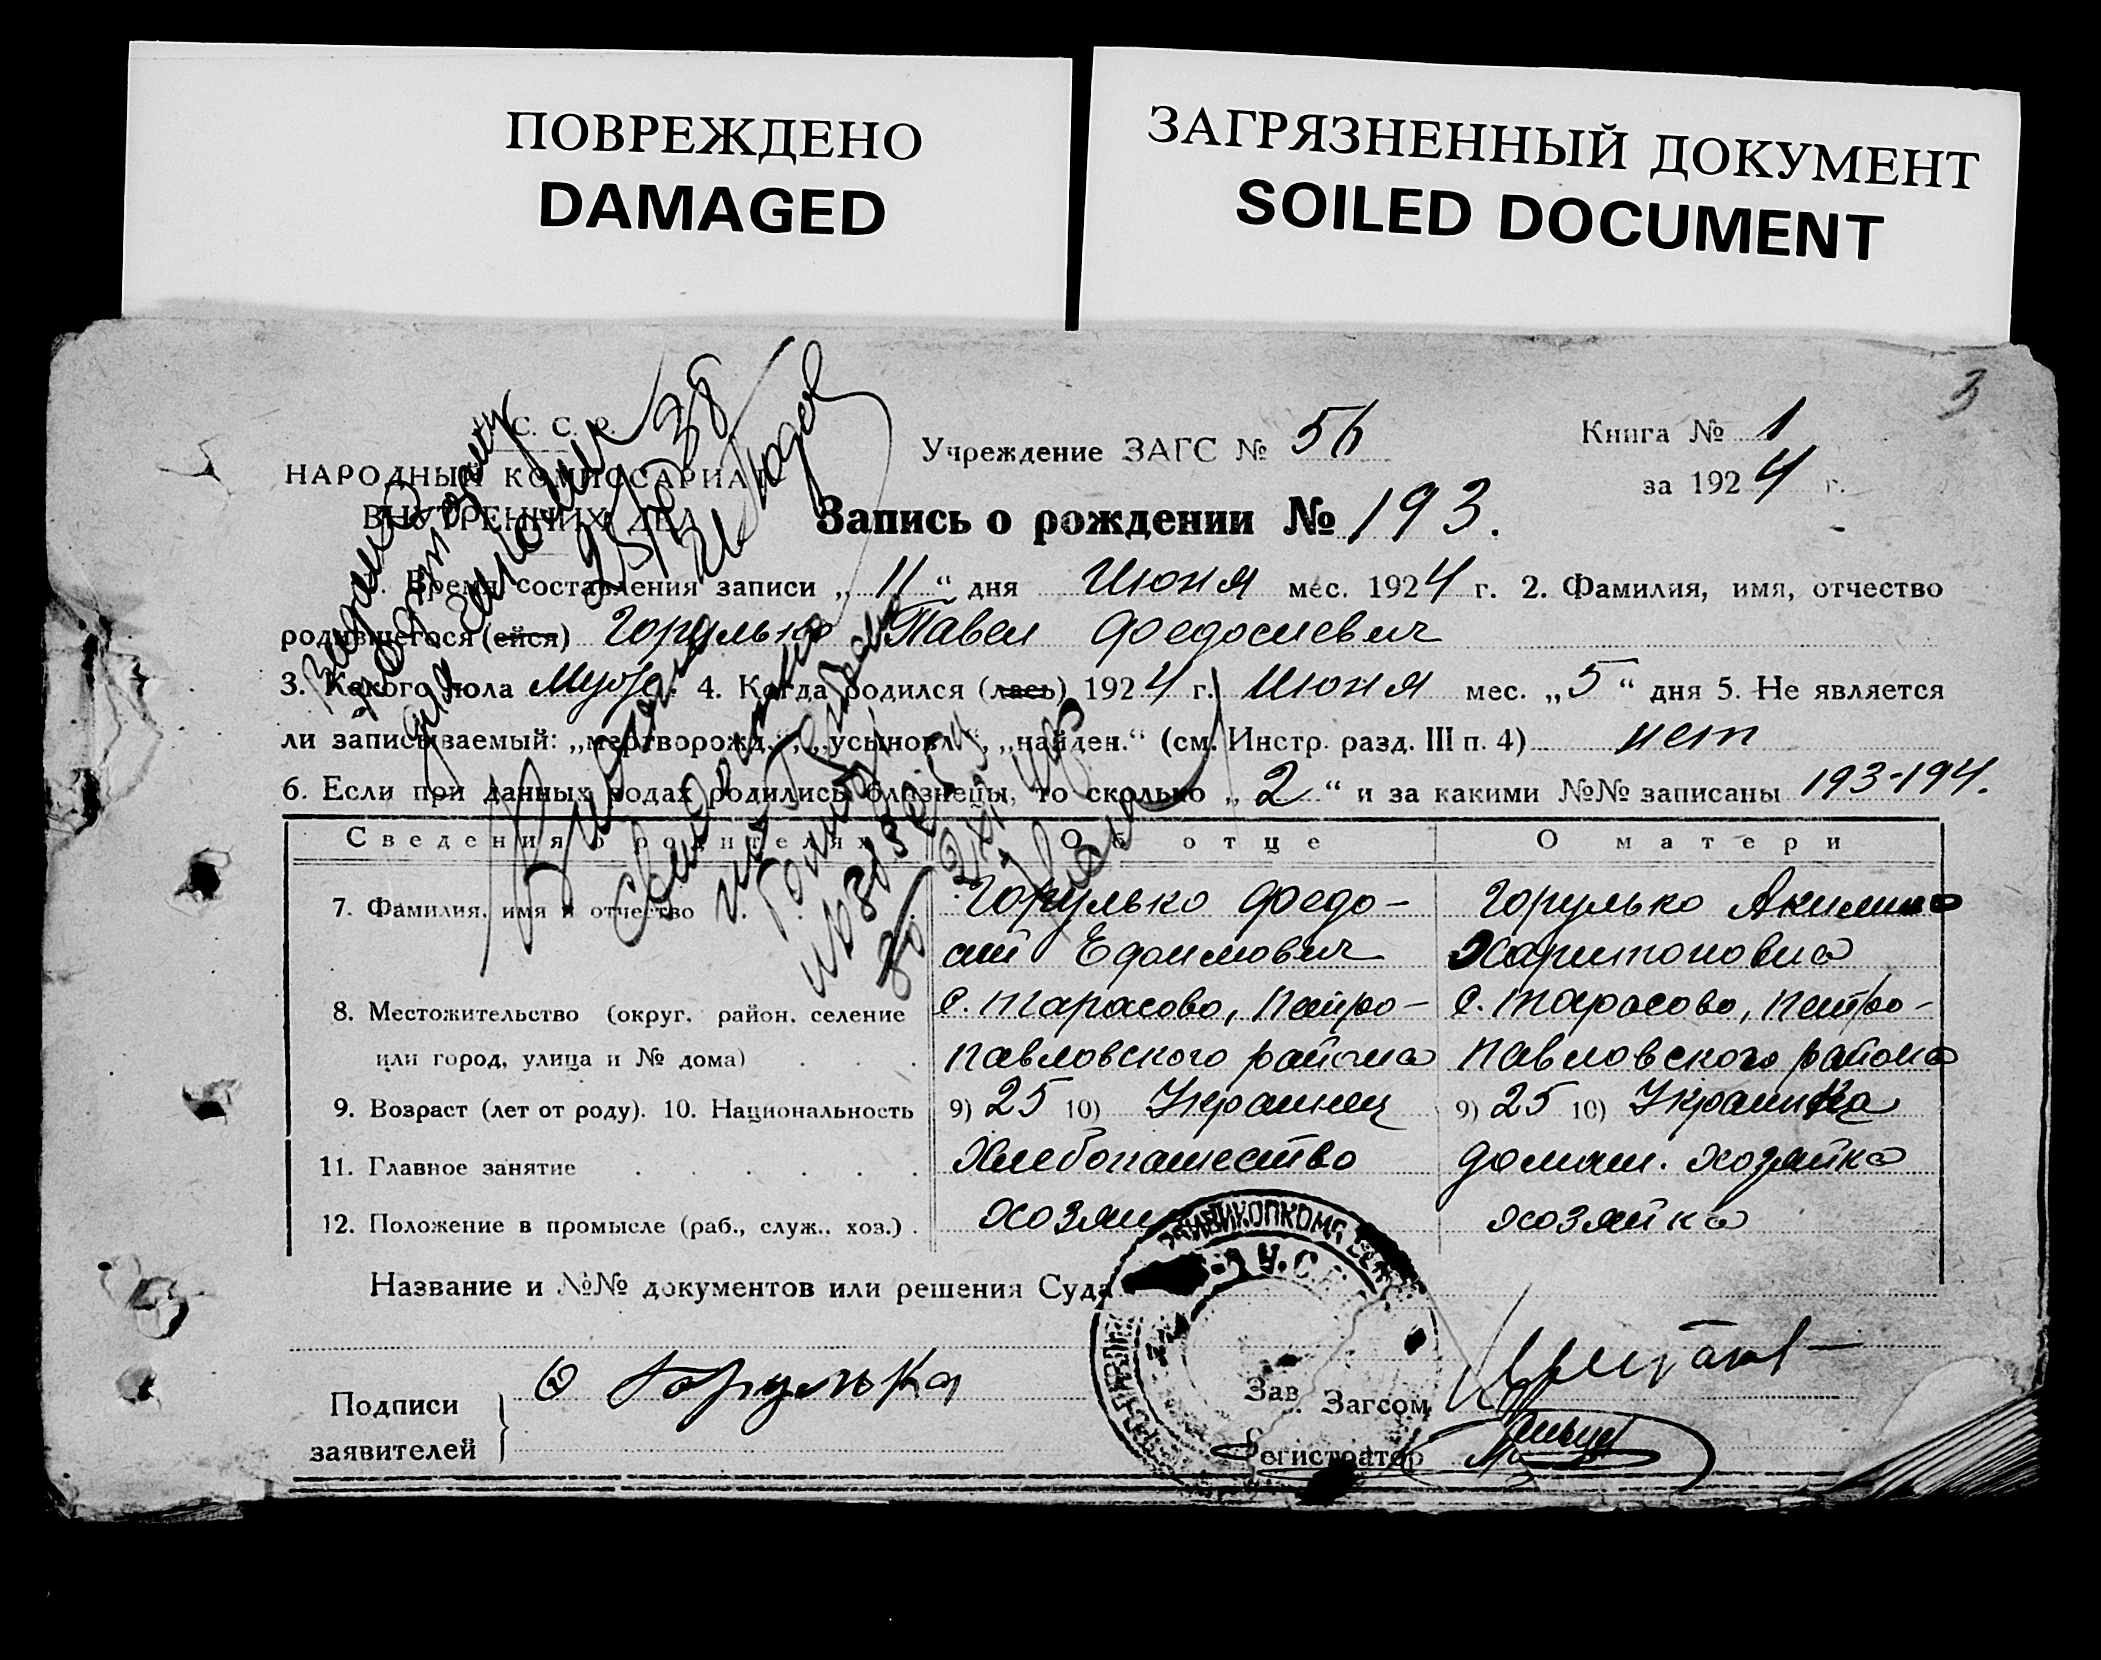 ПОВРЕЖДЕНО
DAMAGED
ЗАГРЯЗНЕННЫЙ ДОКУМЕНТ
SOILED DOCUMENT
3
С. С. Р.
НАРОДНЫЙ КОМИССАРИАТ
ВНУТРЕННИХ ДЕЛ
Учреждение ЗАГС №
Книга № 1
за 1924 г.
Запись о рождении № 193.
1. Время составления записи „11“ дня Июня мес. 1924 г. 2. Фамилия, имя, отчество
родившегося (ейся) Горулько Павел Федосиевич
3. Какого пола Муж. 4. Когда родился (лась) 1924 г. Июня мес. „5“ дня 5. Не является
ли записываемый: „мертворожд.“, „усыновл.“, „найден.“ (см. Инстр. разд. III п. 4) нет
6. Если при данных родах родились близнецы, то сколько „2“ и за какими №№ записаны 193-194.
Сведения о родителях Об отце О матери
7. Фамилия, имя и отчество Горулько Федо- Горулько Акилина
сий Ефимович Харитоновна
8. Местожительство (округ, район, селение с. Тарасово, Петро- с. Тарасово, Петро-
или город, улица и № дома) павловского района павловского района
9. Возраст (лет от роду). 10. Национальность 9) 25 10) Украинец 9) 25 10) Украинка
11. Главное занятие Хлебопашество домаш. хозяйка
12. Положение в промысле (раб., служ., хоз.) хозяин хозяйка
Название и №№ документов или решения Суда
Подписи
заявителей
Ф Горулька
Зав. Загсом
Регистратор